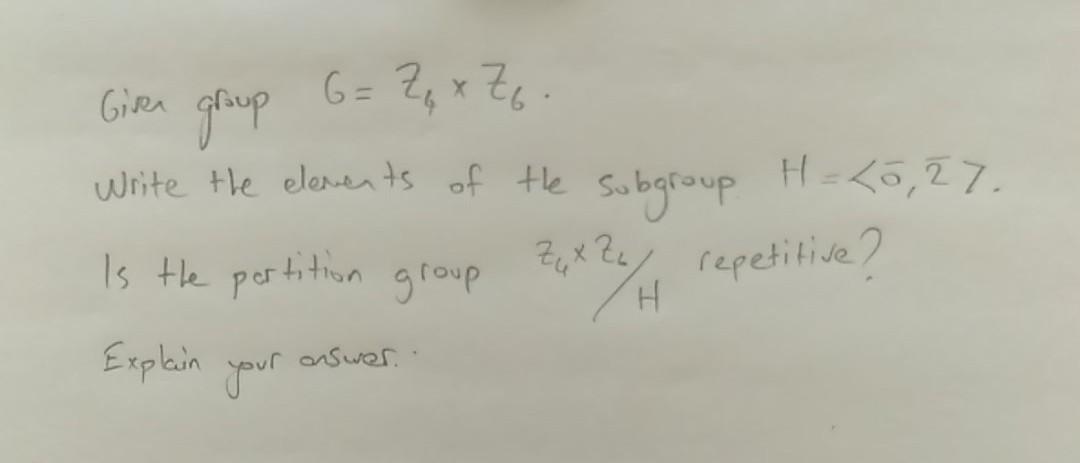 Given group G = Z₄ × Z₆.
Write the elements of the subgroup H = <0̄, 2̄>.
Is the partition group Z₄×Z₆/H repetitive?
Explain your answer.